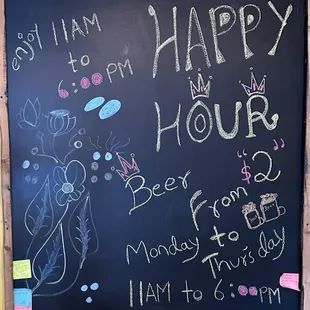 enjoy 11AM
to
6:00PM
HAPPY
HOUR
Beer From "$2"
Monday to
Thursday
11AM to 6:00PM